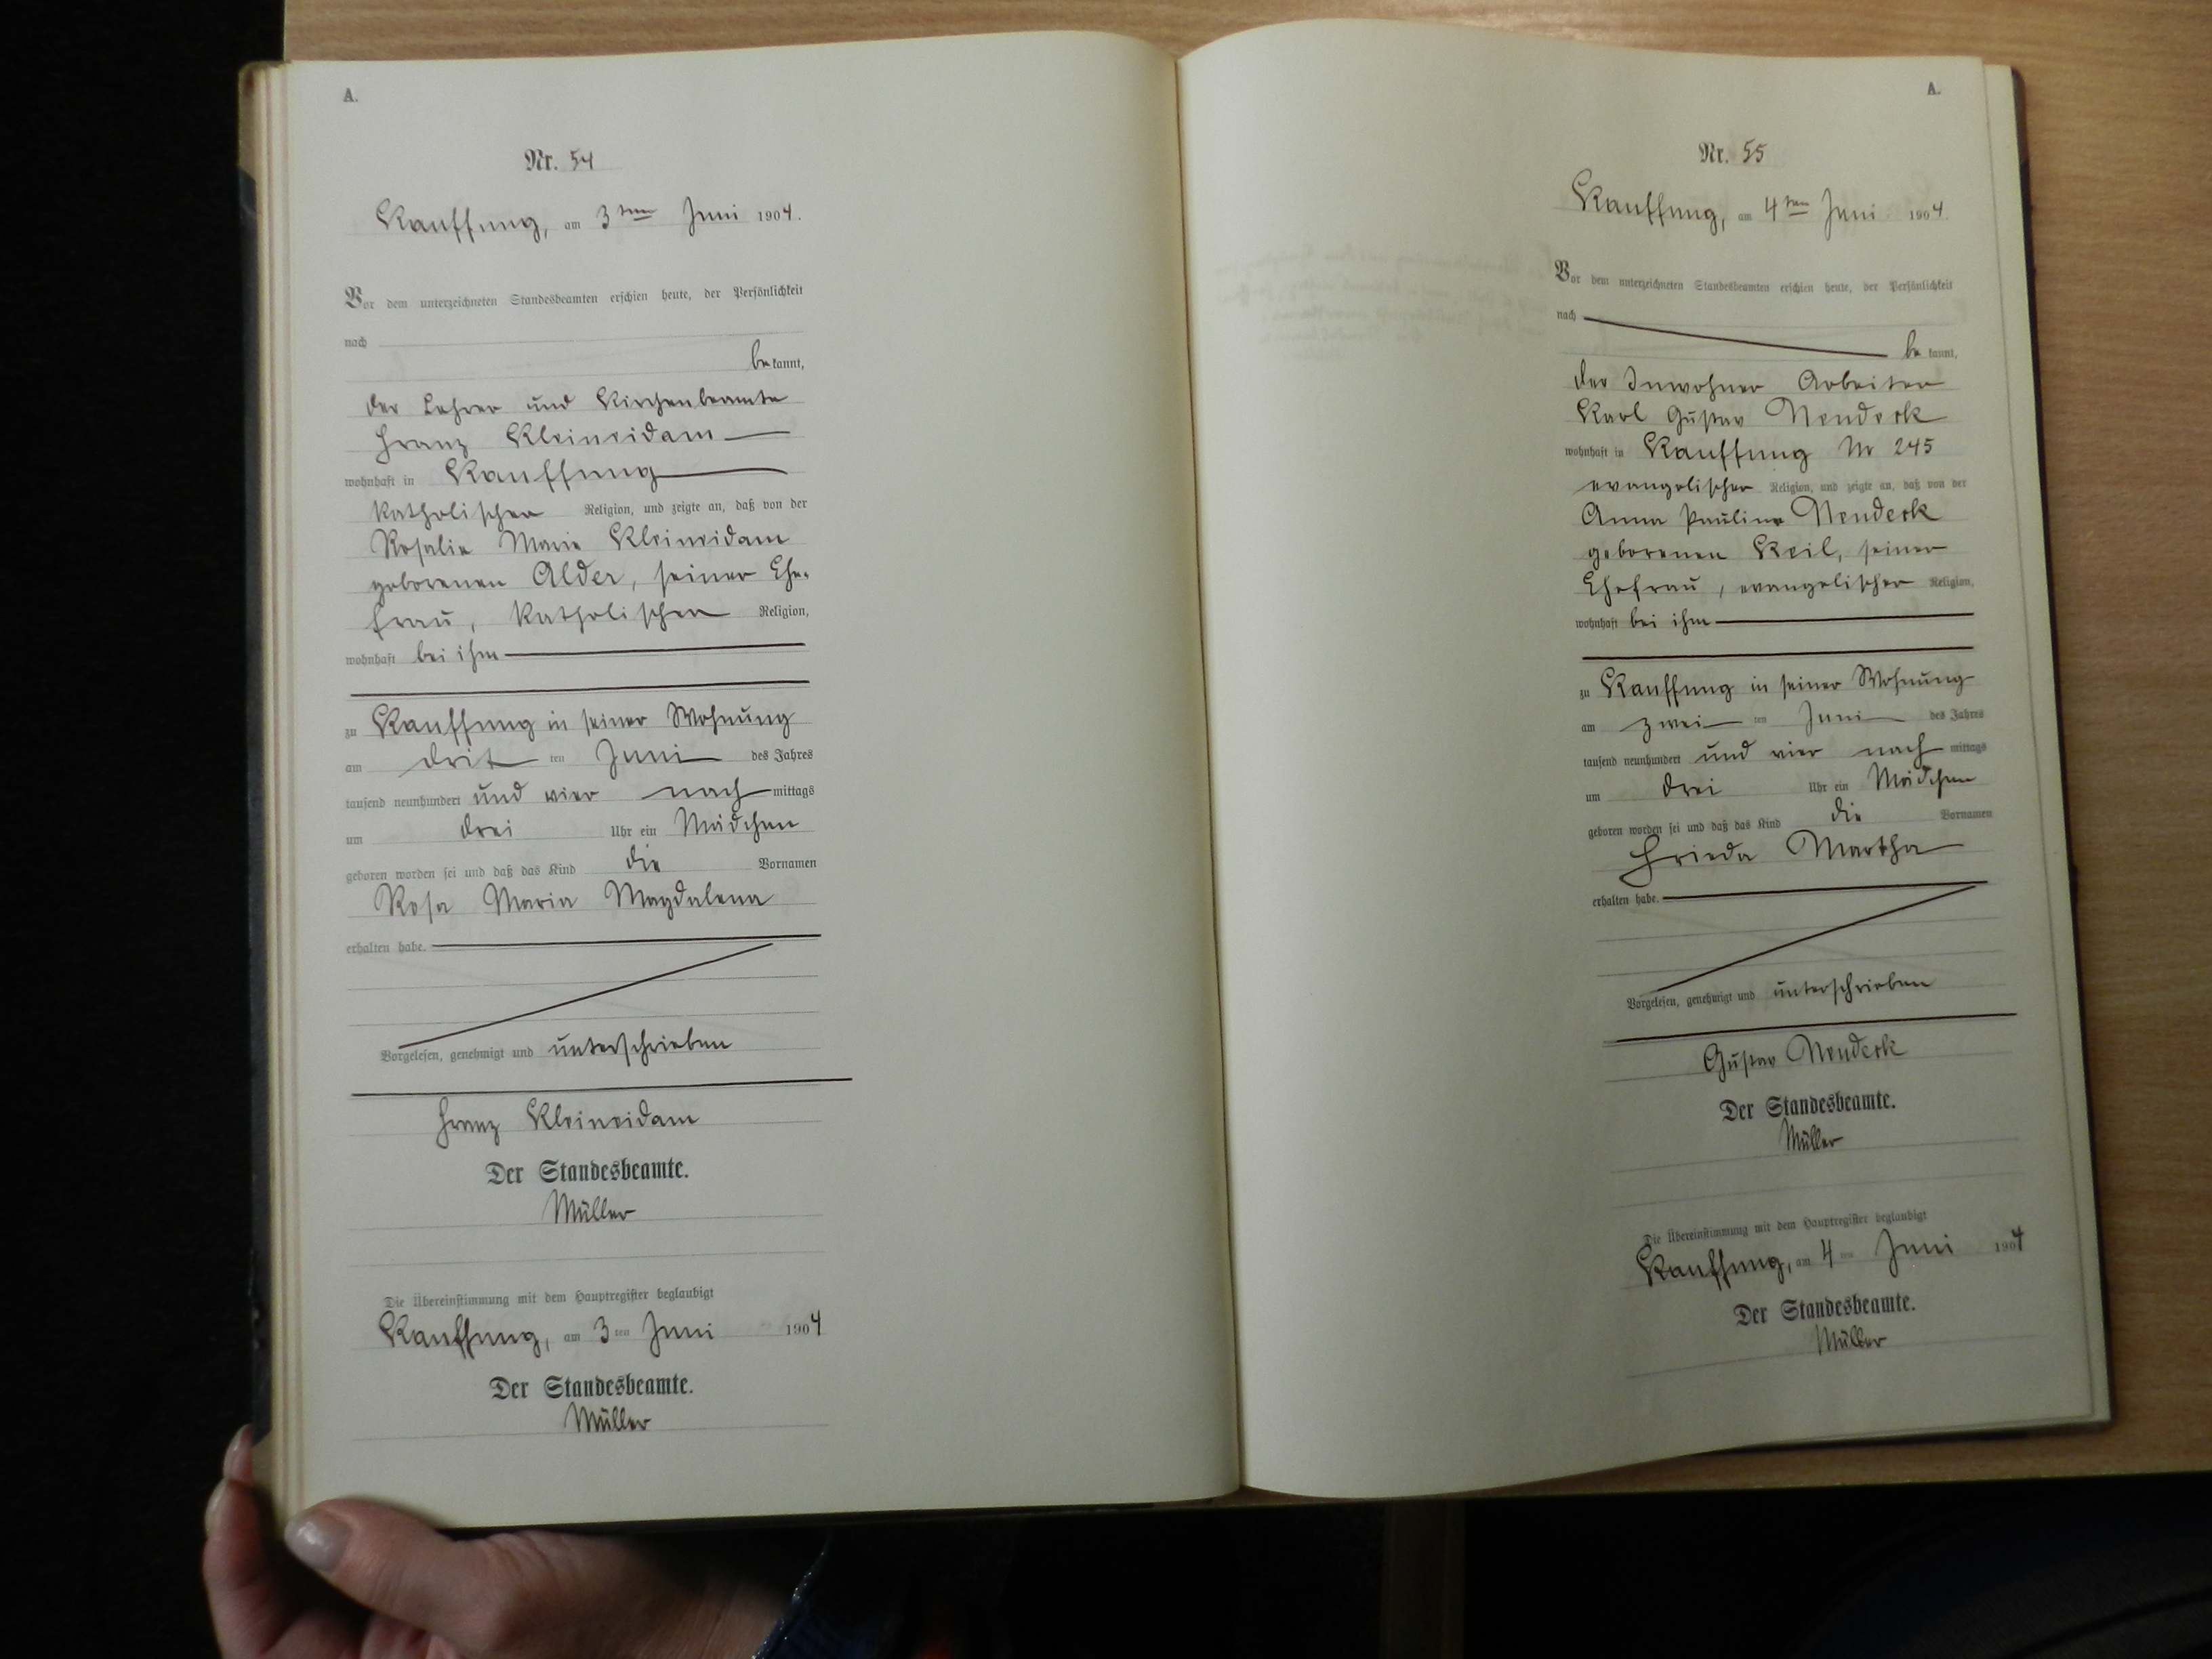 A.
Nr. 54
Kauffung, am 3ten Juni 1904.
Vor dem unterzeichneten Standesbeamten erschien heute, der Persönlichkeit
nach
bekannt,
der Lehrer und Kirchenbeamte
Franz Kleineidam
wohnhaft in Kauffung
katholischer Religion, und zeigte an, daß von der
Rosalie Marie Kleineidam
geborenen Alder, seiner Ehe-
frau, katholischer Religion,
wohnhaft bei ihm
zu Kauffung in seiner Wohnung
am drit ten Juni des Jahres
tausend neunhundert und vier nach mittags
um drei Uhr ein Mädchen
geboren worden sei und daß das Kind die Vornamen
Rosa Maria Magdalena
erhalten habe.
Vorgelesen, genehmigt und unterschrieben
Franz Kleineidam
Der Standesbeamte.
Müller
Die Übereinstimmung mit dem Hauptregister beglaubigt
Kauffung, am 3 ten Juni 1904
Der Standesbeamte.
Müller
A.
Nr. 55
Kauffung, am 4ten Juni 1904.
Vor dem unterzeichneten Standesbeamten erschien heute, der Persönlichkeit
nach
bekannt,
der Inwohner Arbeiter
Karl Gustav Nendeck
wohnhaft in Kauffung Nr 245
evangelischer Religion, und zeigte an, daß von der
Anna Pauline Nendeck
geborenen Keil, seiner
Ehefrau, evangelischer Religion,
wohnhaft bei ihm
zu Kauffung in seiner Wohnung
am zwei ten Juni des Jahres
tausend neunhundert und vier nach mittags
um drei Uhr ein Mädchen
geboren worden sei und daß das Kind die Vornamen
Frieda Martha
erhalten habe.
Vorgelesen, genehmigt und unterschrieben
Gustav Nendeck
Der Standesbeamte.
Müller
Die Übereinstimmung mit dem Hauptregister beglaubigt
Kauffung, am 4 ten Juni 1904
Der Standesbeamte.
Müller